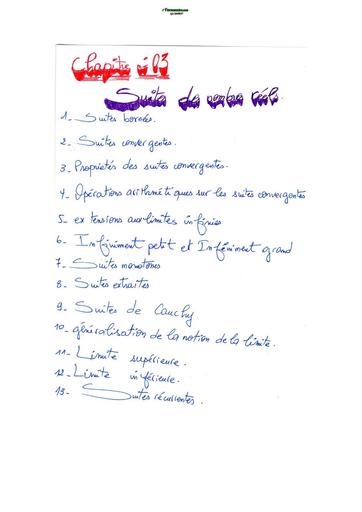 Chapitre n° 03
Suites de nombres réels.
1- Suites bornées.
2- Suites convergentes.
3- Propriétés des suites convergentes.
4- Opérations arithmétiques sur les suites convergentes
5- extensions aux limites infinies
6- Infiniment petit et Infiniment grand
7- Suites monotones
8- Suites extraites
9- Suites de Cauchy.
10- généralisation de la notion de la limite.
11- Limite supérieure.
12- Limite inférieure.
13- Suites récurrentes.